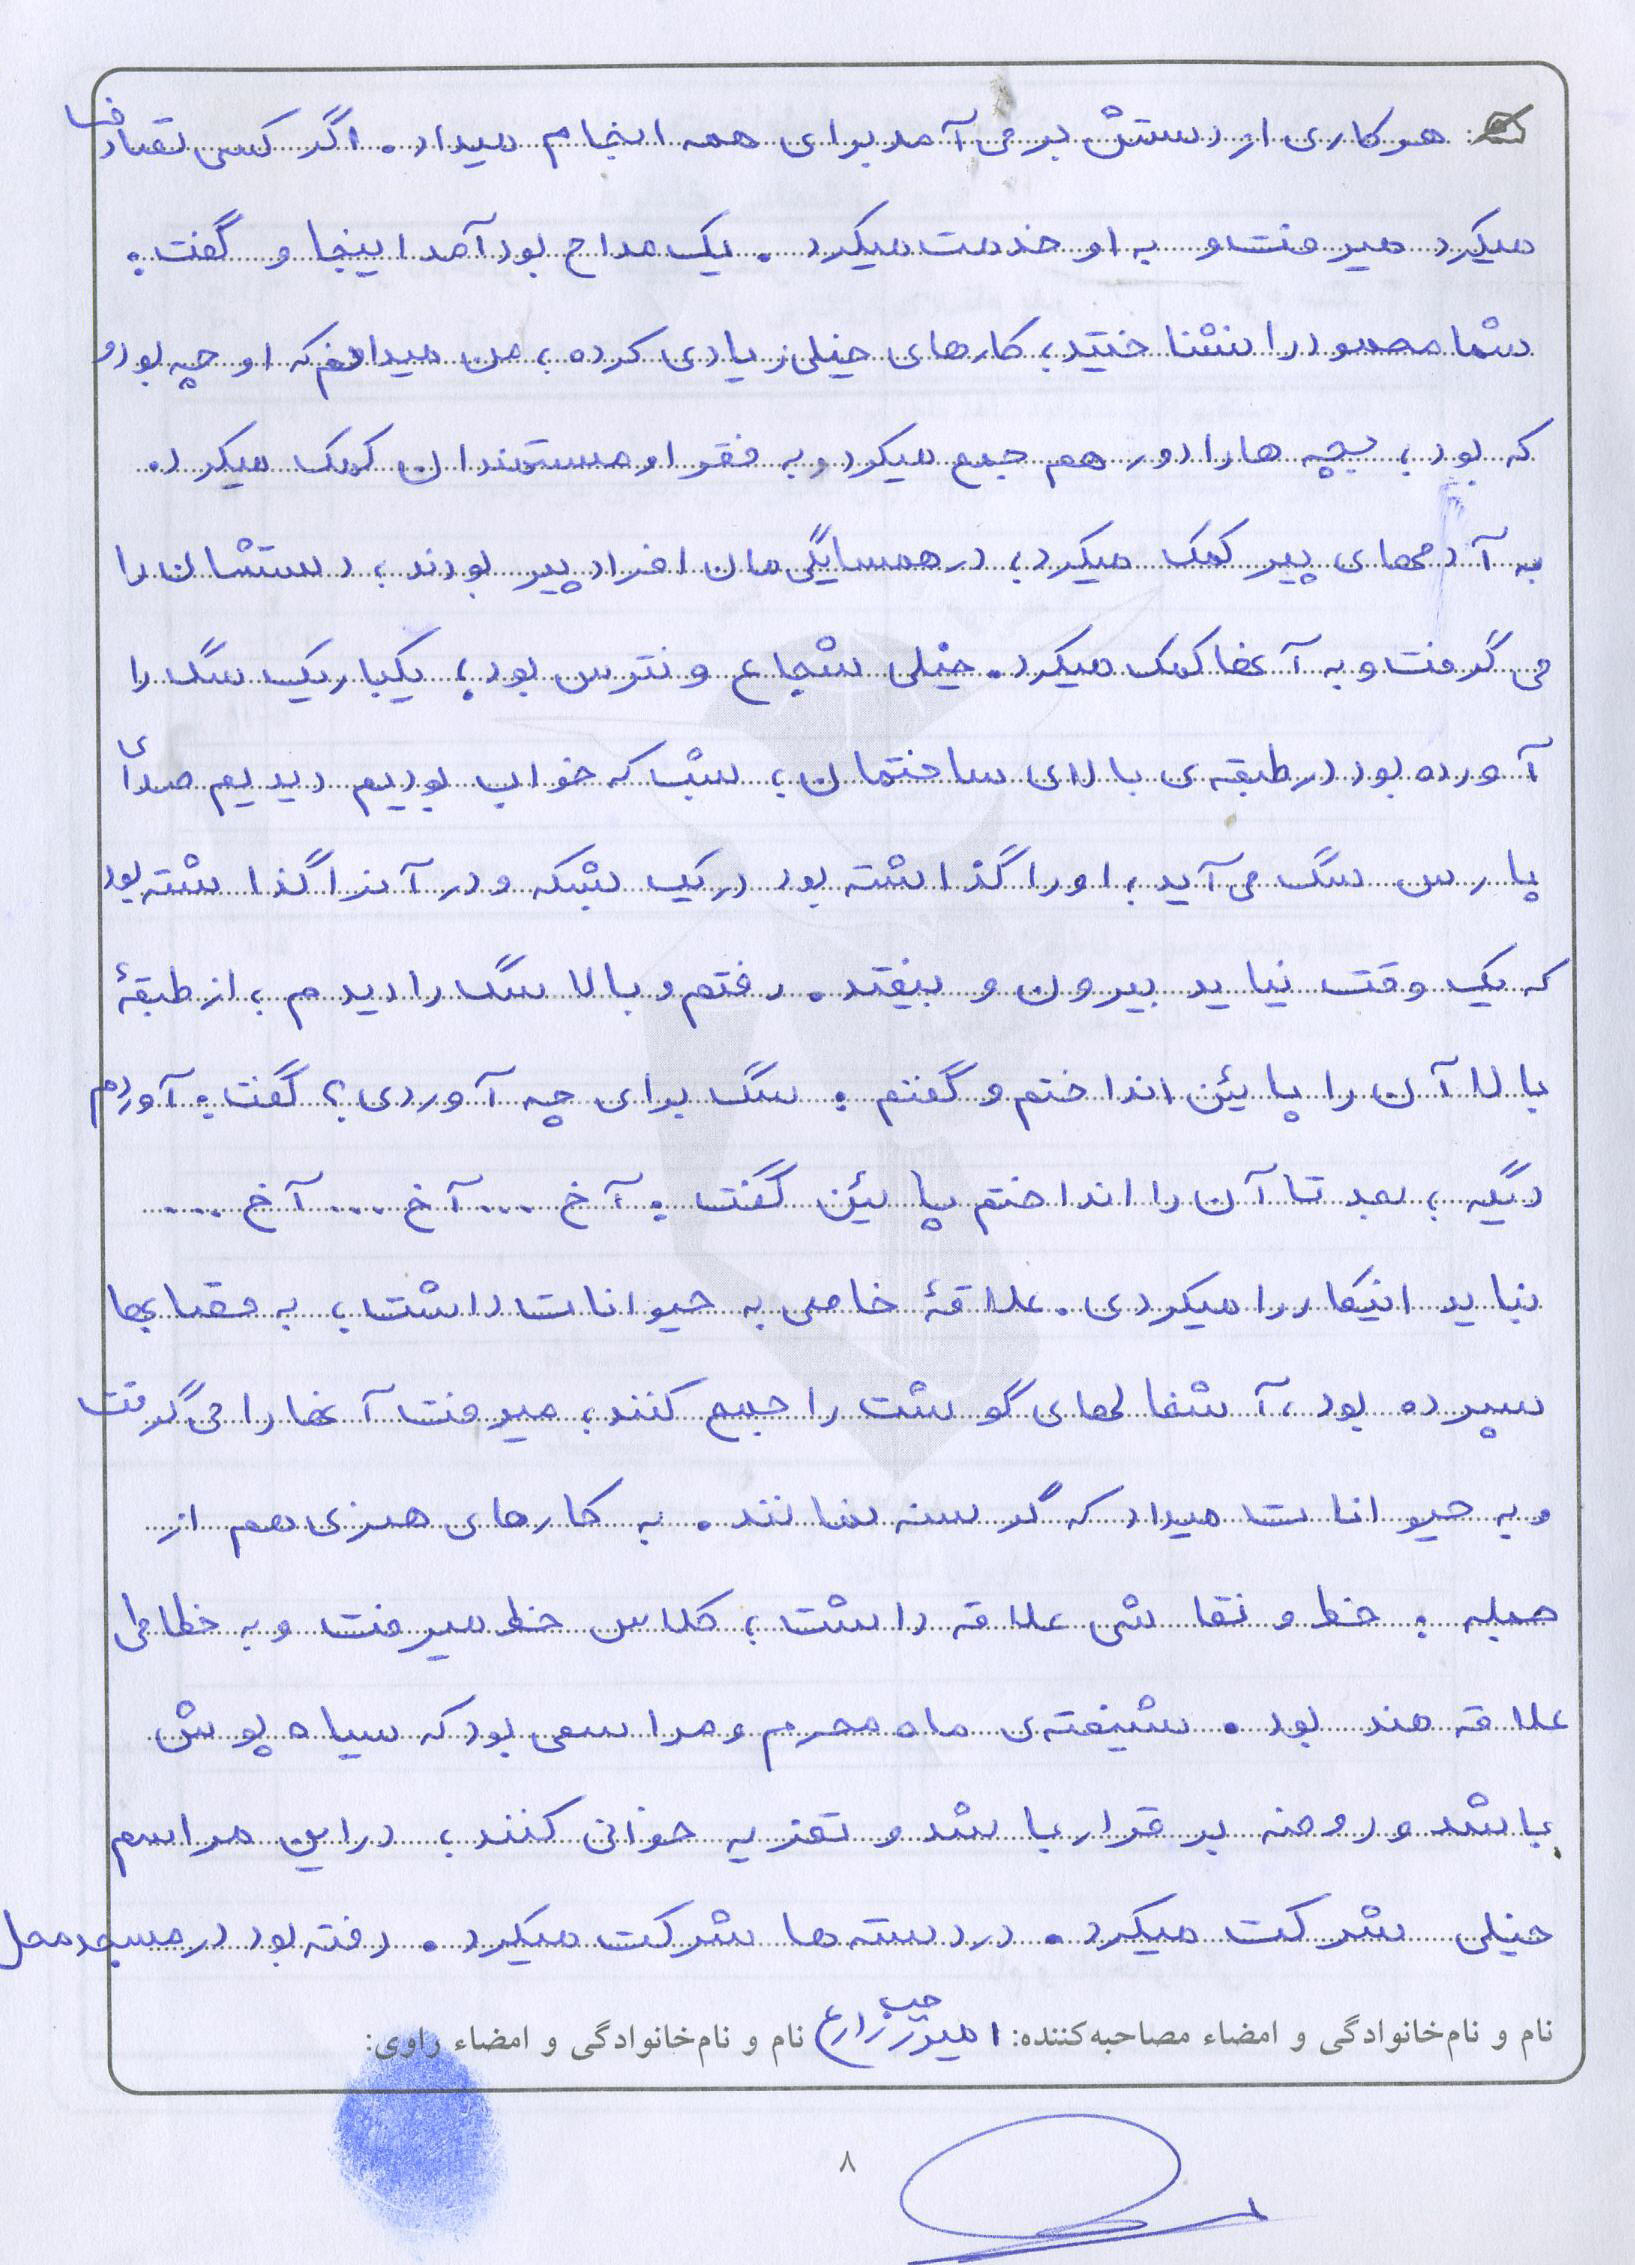 هر کاری از دستش بر می آمد برای همه انجام میداد. اگر کسی تصادف
میکرد میرفت و به او خدمت میکرد. یک مداح بود آمد اینجا و گفت:
شما را نشناختید، کارهای خیلی زیادی کرده، من میدانم که او چه بود و
که بود، بچه ها را دور هم جمع میکرد و به فقرا و مستمندان کمک میکرد.
به آدمهای پیر کمک میکرد، در همسایگی مان افراد پیر بودند، دستشان را
می گرفت و به آنها کمک میکرد. خیلی شجاع و نترس بود، یکبار یک سگ را
آورده بود در طبقه ی بالای ساختمان، شب که خواب بودیم دیدیم صدای
پارس سگ می آید، او را گذاشته بود در یک بشکه و در آنرا گذاشته بود
که یک وقت نیاید بیرون و بیفتد. رفتم و بالا سگ را دیدم، از طبقهٔ
بالا آن را پائین انداختم و گفتم: سگ برای چه آوردی؟ گفت: آوردم
دیگه، بعد تا آن را انداختم پائین گفت: آخ .... آخ .... آخ ....
نباید اینکار را میکردی. علاقهٔ خاصی به حیوانات داشت، به قصابی‌ها
سپرده بود، آشغالهای گوشت را جمع کنند، میرفت آنها را می گرفت
و به حیوانات میداد که گرسنه نمانند. به کارهای هنری هم از
جمله: خط و نقاشی علاقه داشت، کلاس خط میرفت و به خطاطی
علاقه مند بود. شیفته ی ماه محرم و مراسمی بود که سیاه پوش
باشد و روضه برقرار باشد و تعزیه خوانی کنند، در این مراسم
خیلی شرکت میکرد. در دسته ها شرکت میکرد. رفته بود در مسجد محل
نام و نام‌خانوادگی و امضاء مصاحبه‌کننده: نام و نام‌خانوادگی و امضاء راوی:
۸